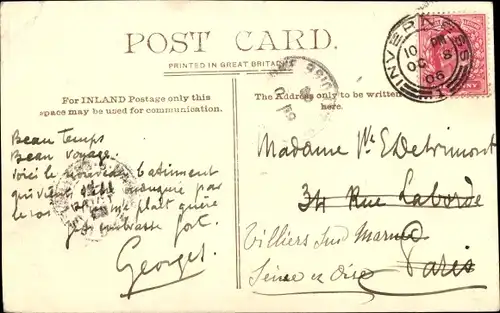 POST CARD.
PRINTED IN GREAT BRITAIN
For INLAND Postage only this
space may be used for communication.
The Address only to be written
here.
INVERARAY
10 PM
OC 8
06
Beau temps
Beau voyage.
Voici le nouveau batiment
qui vient d'être inauguré par
le roi plait guère
embrasse fort.
Georges.
Madame Ve E Detrimont
34 Rue Laborde
Paris
Villiers sur Marne
Seine et Oise